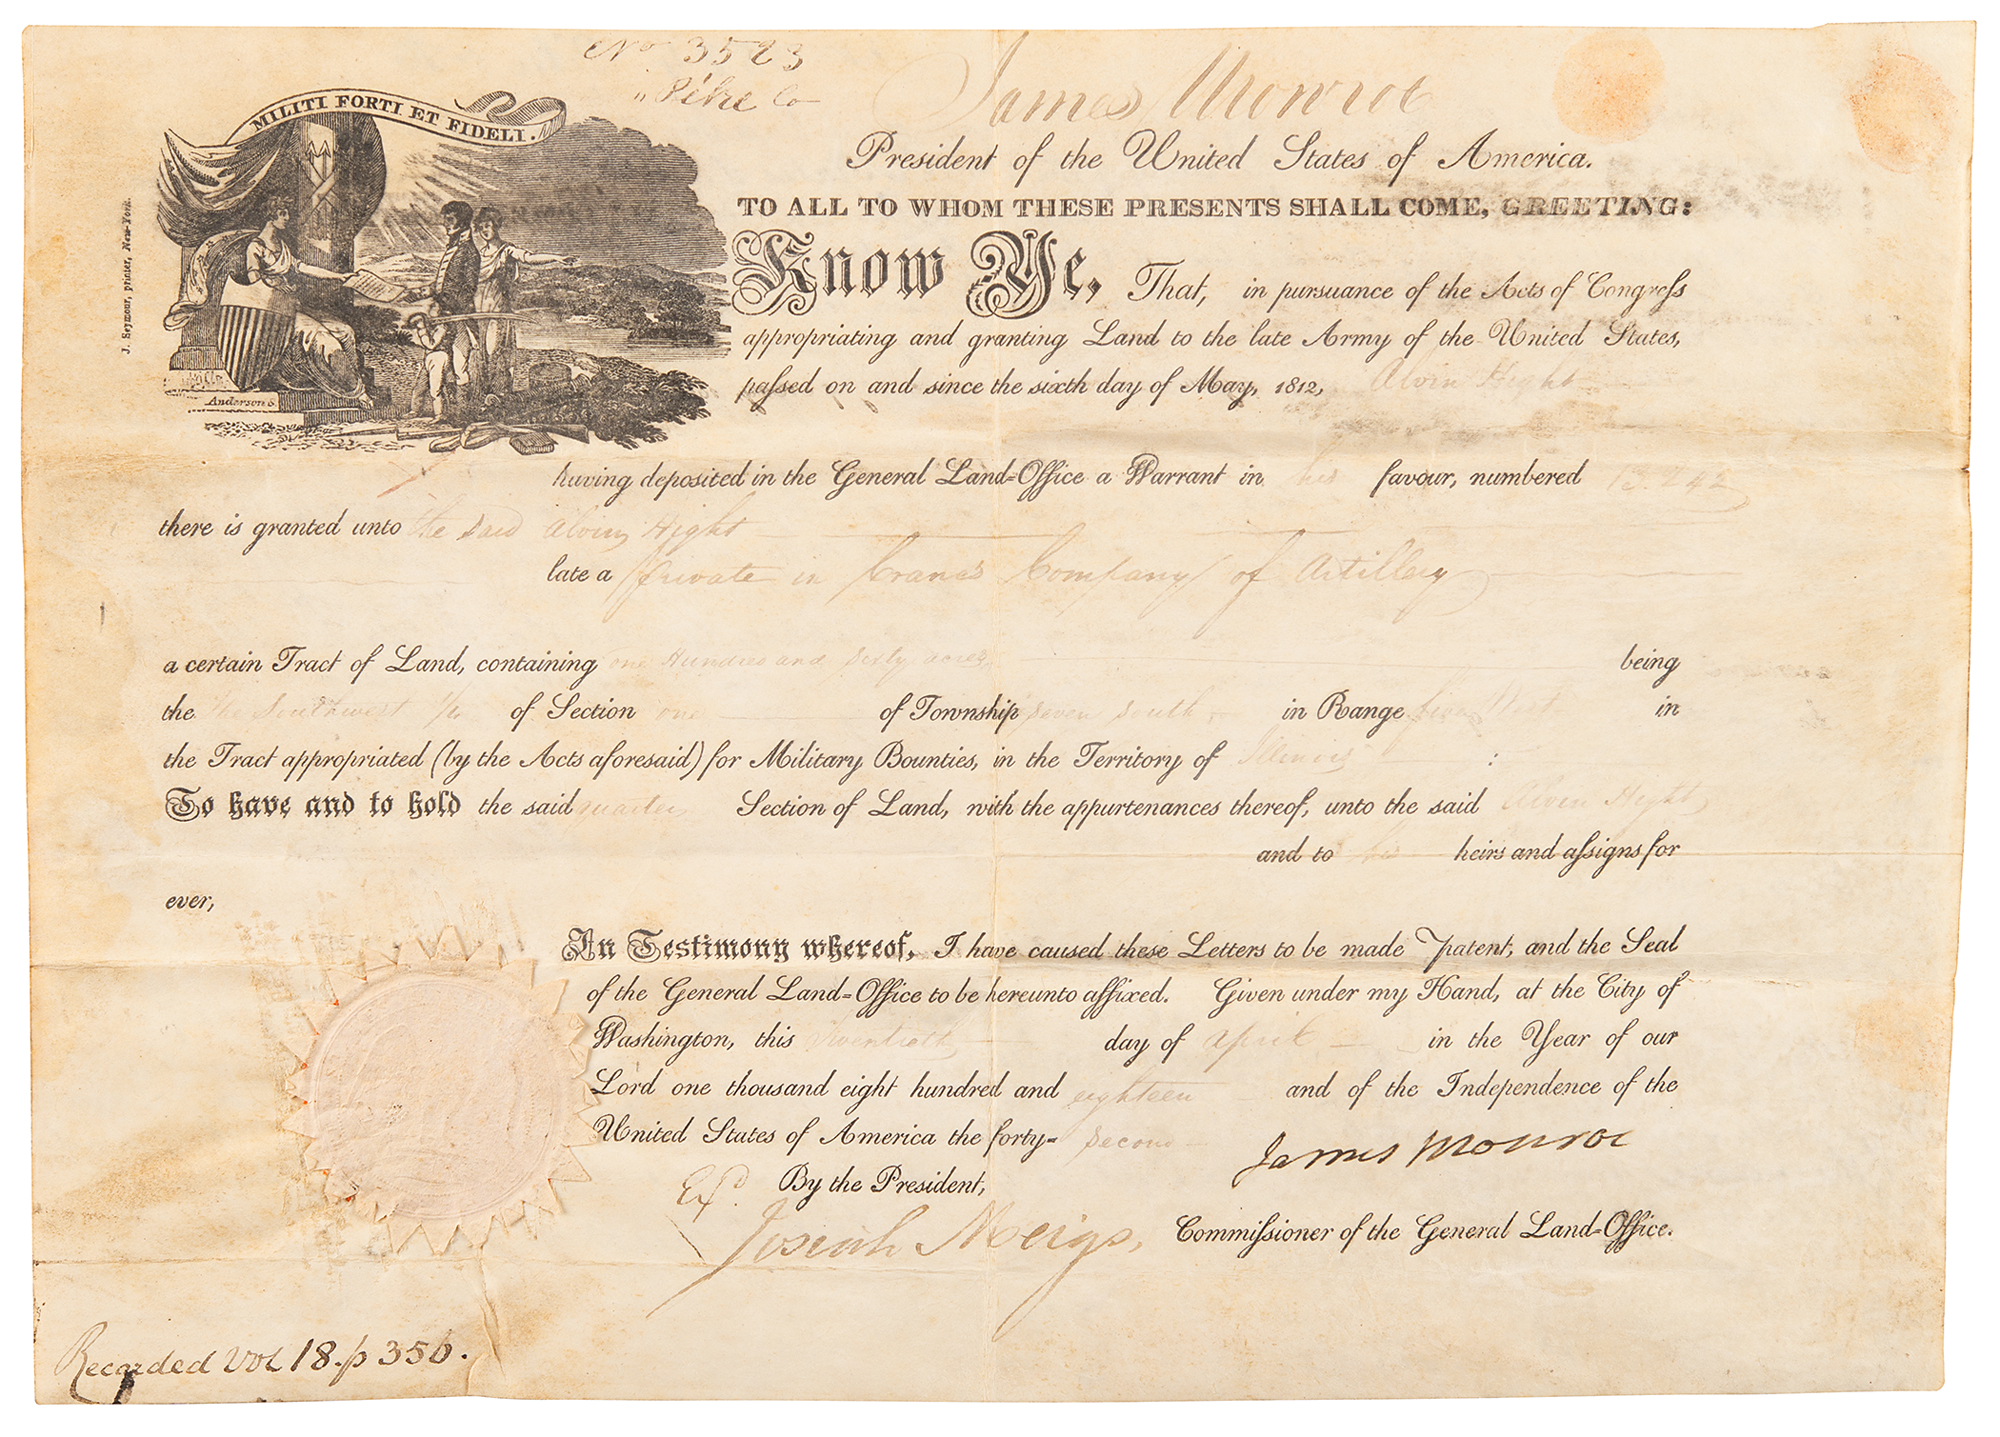 No 3523
" Pike Co
MILITI FORTI ET FIDELI.
J. Seymour, printer, New-York.
Anderson S.
James Monroe
President of the United States of America.
TO ALL TO WHOM THESE PRESENTS SHALL COME, GREETING:
Know Ye, That, in pursuance of the Acts of Congress
appropriating and granting Land to the late Army of the United States,
passed on and since the sixth day of May, 1812, Alvin Hight
having deposited in the General Land-Office a Warrant in his favour, numbered 13.242
there is granted unto the said Alvin Hight
late a private in Crane's Company of Artillery
a certain Tract of Land, containing one Hundred and sixty acres being
the the Southwest 1/4 of Section one of Township seven south in Range five West in
the Tract appropriated (by the Acts aforesaid) for Military Bounties, in the Territory of Illinois :
To have and to hold the said quarter Section of Land, with the appurtenances thereof, unto the said Alvin Hight
and to his heirs and assigns for
ever,
In Testimony whereof, I have caused these Letters to be made Patent, and the Seal
of the General Land-Office to be hereunto affixed. Given under my Hand, at the City of
Washington, this twentieth day of April in the Year of our
Lord one thousand eight hundred and eighteen and of the Independence of the
United States of America the forty-second
James Monroe
Exd. By the President,
Josiah Meigs, Commissioner of the General Land-Office.
Recorded Vol 18. p 356.